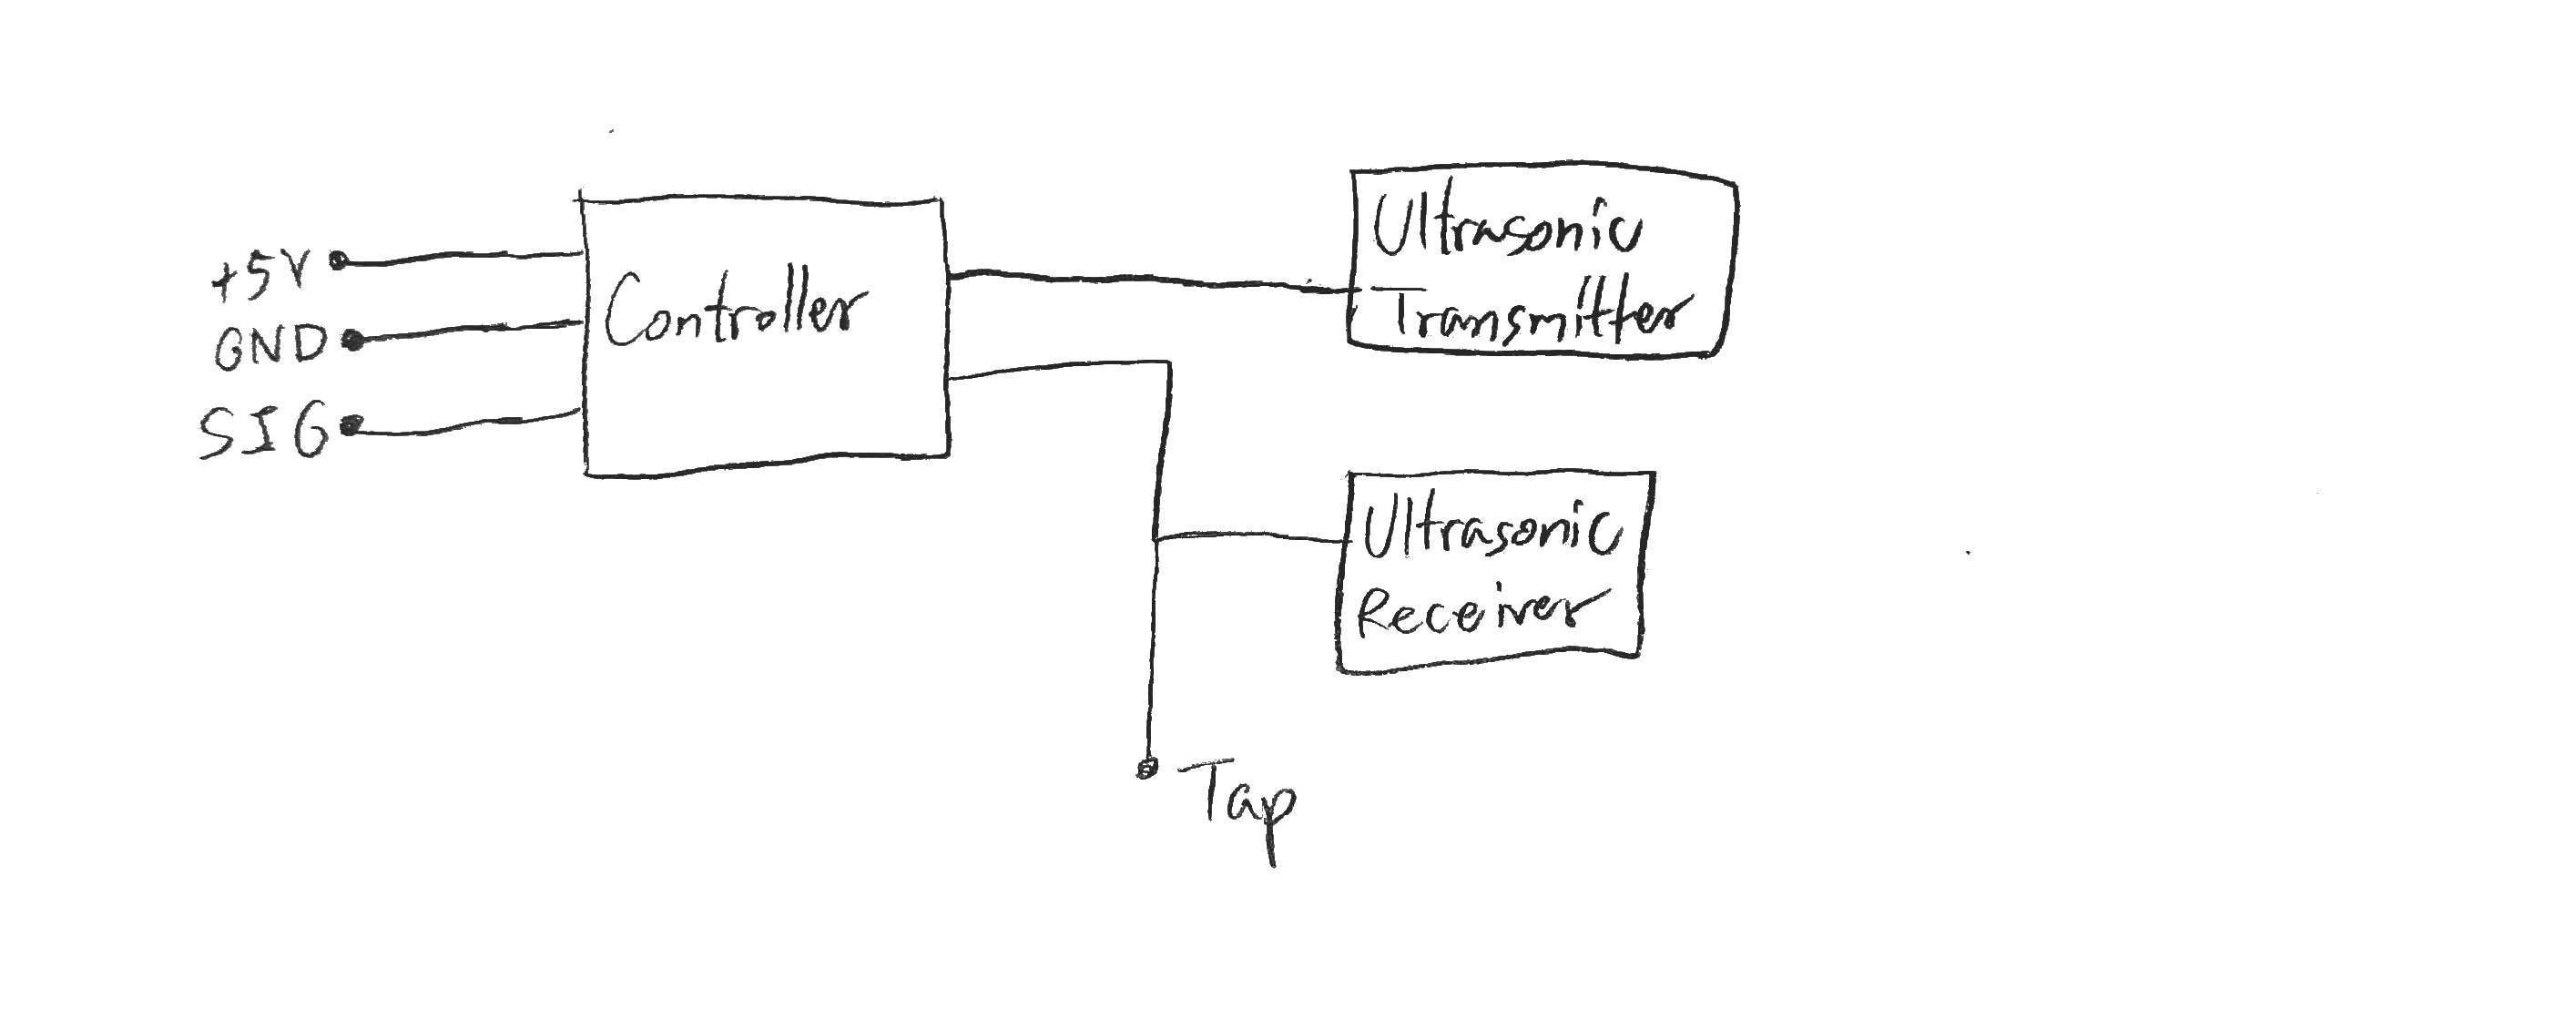 +5V
GND
SIG
Controller
Ultrasonic
Transmitter
Ultrasonic
Receiver
Tap